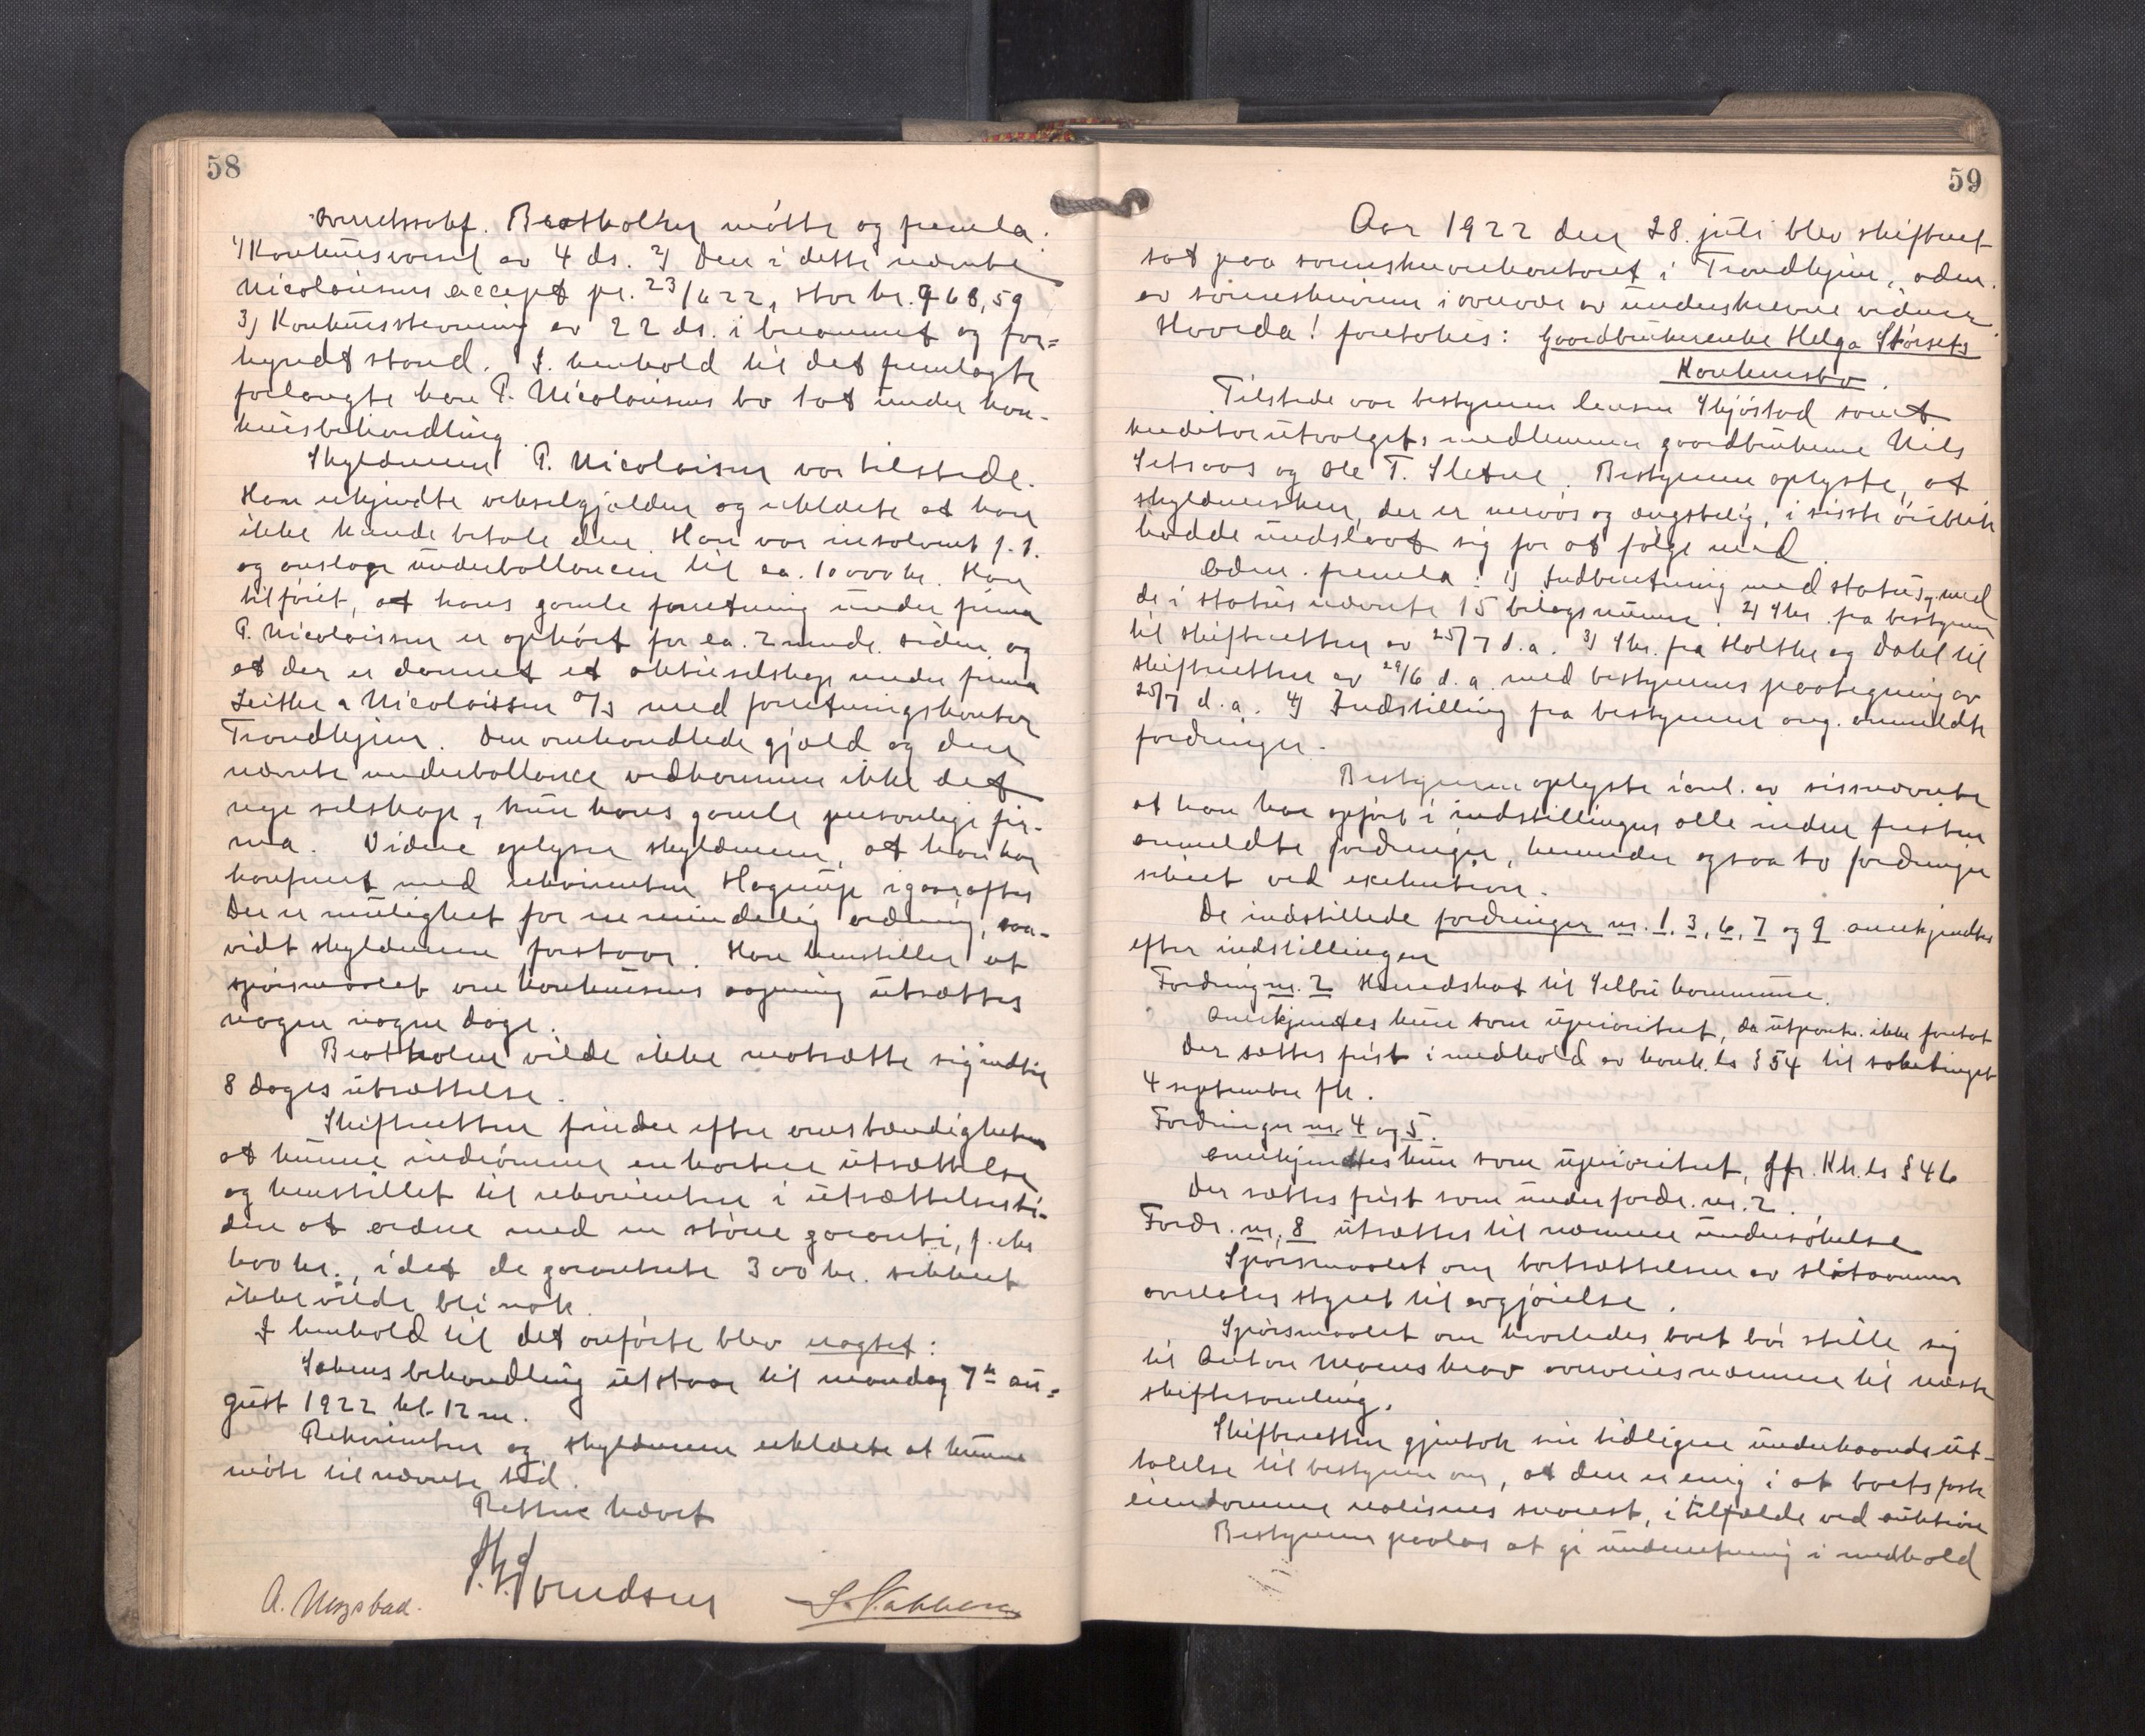 58
Bratholm møtte og fremla:
1) Konkursvarsel av 4 ds. 2) Den i dette nævnte
Nicolaisens accept pr. 23/6 22, stor kr. 968,59
3) Konkursstevning av 22 ds. i berammet og for-
kyndt stand. I henhold til det fremlagte
forlangte han P. Nicolaisens bo tat under kon-
kursbehandling.
Skyldneren P. Nicolaisen var tilstede.
Han erkjendte vekselgjælden og erklærte at han
ikke kunde betale den. Han var insolvent f. t.
og anslaar underballancen til ca. 10000 kr. Han
tilføiet, at hans gamle forretning under firma
P. Nicolaissen er ophørt for ca. 2 mndr. siden og
at der er dannet et aktieselskap under firma
Leither & Nicolaissen A/S med forretningskontor
Trondhjem. Den omhandlede gjæld og den
nævnte underballance vedkommer ikke det
nye selskap, kun hans gamle personlige fir-
ma. Videre oplyser skyldneren, at han har
konferert med rekvirenten Hagrup igaar aftes
Der er mulighet for en mindelig ordning, saa-
vidt skyldneren forstaar. Han henstiller at
spørsmaalet om konkursens aapning utsættes
nogen nogen dage.
Bratholm vilde ikke motsætte sig indtil
8 dages utsættelse.
Skifteretten finder efter omstændigheterne
at kunne indrømme en kortere utsættelse
og henstillet til rekvirenten i utsættelsesti-
den at ordne med en større garanti, f. eks
600 kr., idet de garanterte 300 kr. sikkert
ikke vilde bli nok.
I henhold til det anførte blev vragtet:
Sakens behandling utstaar til mandag 7de au-
gust 1922 kl. 12 m.
Rekvirenten og skyldneren erklærte at kunne
møte til nævnte tid.
Retten hævet
59
Aar 1922 den 28. juli blev skifteret
sat paa sorenskriverkontoret i Trondhjem, adm.
av sorenskriveren i overvær av underskrevne vidner.
Hvorda! foretokes: Gaardbrukerenke Helga Størsets
Konkursbo.
Tilstede var bestyreren lensm. Skjøstad samt
kreditorutvalgets medlemmer gaardbrukerne Nils
Setsaas og Ole T. Sletne. Bestyreren oplyste, at
skyldnersken, der er nervøs og ængstelig, i siste øieblik
hadde undslaat sig for at følge med.
Adm. fremla: 1) Indberetning med status, med
de i status nævnte 15 bilagsnumre. 2) Skr. fra bestyreren
til skifteretten av 25/7 d.a. 3) Skr. fra Holthe og Dahl til
skifteretten av 29/6 d.a. med bestyrerens paategning av
25/7 d.a. 4) Indstilling fra bestyreren ang. anmeldte
fordringer.
Bestyreren oplyste i anl. av sisnævnte
at han har opført i indstillingen alle inden fristen
anmeldte fordringer, herunder ogsaa to fordringer
sikret ved exekution.
De indstillede fordringer nr. 1, 3, 6, 7 og 9 anerkjendtes
efter indstillingen
Fordring nr. 2 Herredskat til Selbu kommune.
Anerkjendtes kun som uprioritert, da utpantn. ikke foretat
Der sættes frist i medhold av konk. ls § 54 til saketinget
4 september fk.
Fordringer nr. 4 og 5.
anerkjendtes kun som uprioritert, jfr. Kk. ls § 46
Der sættes frist som under fordr. nr. 2.
Fordr. nr. 8 utsættes til nærmere undersøkelse
Spørsmaalet om bortsættelsen av slåtaannen
overlates styret til avgjørelse.
Spørsmaalet om hvorledes boet bør stille sig
til Anton Moens krav oversees nærmere til næste
skiftesamling.
Skifteretten gjentok sin tidligere underhaands ut-
talelse til bestyreren om, at den er enig i at boets faste
eiendomme realiseres snarest, i tilfælde ved auktion
Bestyreren paalas at gi underretning i medhold